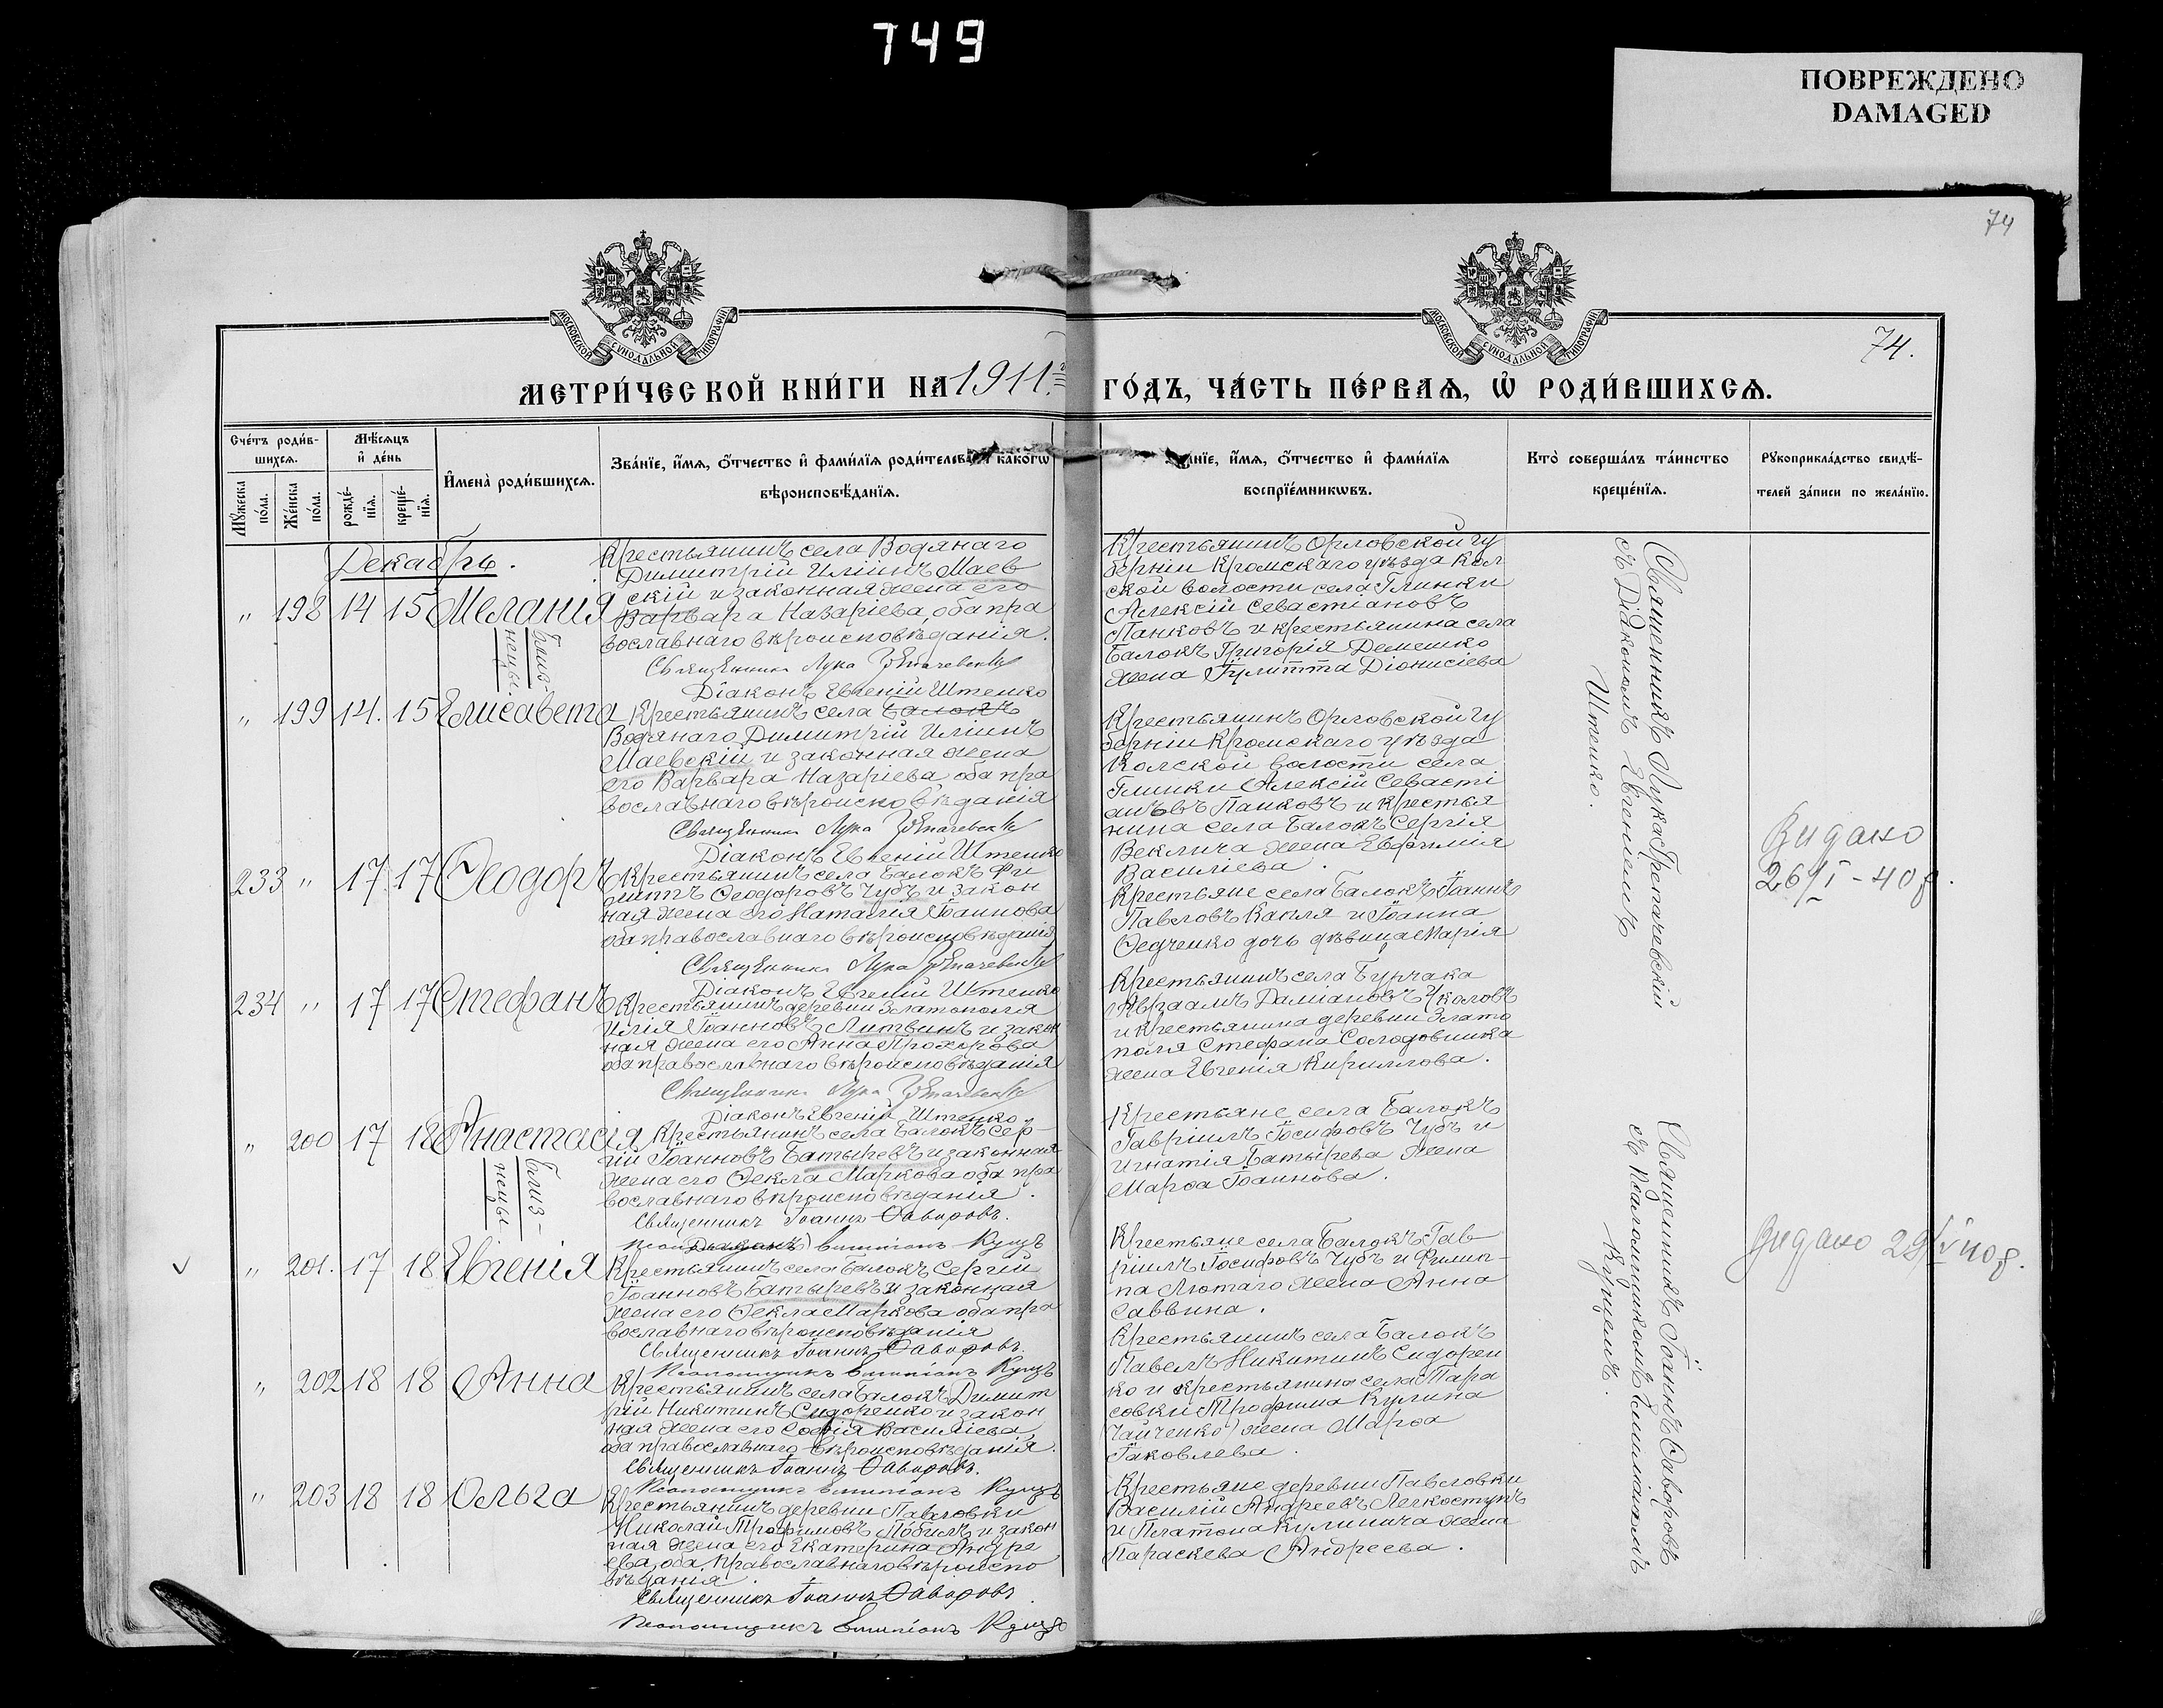 749
ПОВРЕЖДЕНО
DAMAGED
74
74.
МОСКОВСКОЙ СѴНОДАЛЬНОЙ ТИПОГРАФІИ
МОСКОВСКОЙ СѴНОДАЛЬНОЙ ТИПОГРАФІИ
МЕТРИ́ЧЕСКОЙ КНИ́ГИ НА 1911 г.
ГО́ДЪ, ЧА́СТЬ ПЕ́РВАѦ, Ѡ҆ РОДИ́ВШИХСѦ.
Сче́тъ роди́в-
шихсѧ.
Мꙋ́жеска по́ла.
Же́нска по́ла.
Мѣ́сѧцъ
и҆ де́нь
рожде́-
нїѧ.
креще́-
нїѧ.
И҆мена̀ роди́вшихсѧ.
Зва́нїе, и҆́мѧ, ѻ҆́тчество и҆ фами́лїѧ роди́телей и҆ како́гѡ
вѣроисповѣ́данїѧ.
и҆́мѧ, ѻ҆́тчество и҆ фами́лїѧ
воспрїе́мникѡвъ.
Кто̀ соверша́лъ та́инство
креще́нїѧ.
Рꙋкоприкла́дство свидѣ́-
телей за́писи по жела́нїю.
Декабрь.
„ 198 14 15 Меланія
Близ-
нецы.
Крестьянинъ села Водянаго
Димитрій Иліинъ Маев
скій и законная жена его
Варвара Назаріева, оба пра
вославнаго вѣроисповѣданія.
Священникъ Лука
Діаконъ Евгеній Штепко
Крестьянинъ Орловской гу
берніи Кромскаго уѣзда Кол
ской волости села Глинки
Алексій Севастіановъ
Панковъ и крестьянина села
Балокъ Григорія Демешко
жена Іулитта Діонисіева
„ 199 14. 15 Елисавета
Крестьянинъ села Балокъ
Водянаго Димитрій Иліинъ
Маевскій и законная жена
его Варвара Назаріева, оба пра
вославнаго вѣроисповѣданія
Священникъ Лука
Діаконъ Евгеній Штепко
Крестьянинъ Орловской гу
берніи Кромскаго уѣзда
Колской волости села
Глинки Алексій Севасті
ановъ Панковъ и крестья
нина села Балокъ Сергія
Веклича жена Евфимія
Василіева.
233 „ 17 17 Ѳеодоръ
Крестьянинъ села Балокъ Фи
липпъ Ѳеодоровъ Чубъ и закон
ная жена его Наталія Іоаннова
оба православнаго вѣроисповѣданія
Священникъ Лука
Діаконъ Евгеній Штепко
Крестьяне села Балокъ Іоаннъ
Павловъ Капля и Іоанна
Ѳедченко дочь дѣвица Марія
Видано
26/I - 40 р.
234 „ 17 17 Стефанъ
Крестьянинъ деревни Златополя
Илія Іоанновъ Литвинъ и закон
ная жена его Анна Прохорова
оба православнаго вѣроисповѣданія
Священникъ Лука
Діаконъ Евгеній Штепко
Крестьянинъ села Бурчака
Авраамъ Даміановъ
и крестьянина деревни Злато
поля Стефана Солодовника
жена Евгенія Кириллова.
Священникъ Лука
съ Діакономъ Евгеніемъ
Штепко.
„ 200 17 18 Анастасія
Близ-
нецы.
Крестьянинъ села Балокъ Сер-
гій Іоанновъ Батыревъ и законная
жена его Ѳекла Маркова оба пра
вославнаго вѣроисповѣданія.
Священникъ Іоаннъ Ѳаворовъ.
Псаломщикъ Емиліанъ Куцъ
Крестьяне села Балокъ
Гавріилъ Іосифовъ Чубъ и
Игнатія Батырева жена
Марѳа Іоаннова.
„ 201. 17 18 Евгенія
Крестьянинъ села Балокъ Сергій
Іоанновъ Батыревъ и законная
жена его Ѳекла Маркова оба пра
вославнаго вѣроисповѣданія
Священникъ Іоаннъ Ѳаворовъ.
Псаломщикъ Емиліанъ Куцъ
Крестьяне села Балокъ Гав
ріилъ Іосифовъ Чубъ и Филип-
па Лютаго жена Анна
Саввина.
Видано 29/IV 40 р.
„ 202 18 18 Анна
Крестьянинъ села Балокъ Димит
рій Никитинъ Сидоренко и закон
ная жена его Софія Василіева,
оба православнаго вѣроисповѣданія.
Священникъ Іоаннъ Ѳаворовъ.
Псаломщикъ Емиліанъ Куцъ
Крестьянинъ села Балокъ
Павелъ Никитинъ Сидорен
ко и крестьянина села Тара
совки Трофима Кулина
(Чайченко) жена Марѳа
Іаковлева.
„ 203 18 18 Ольга
Крестьянинъ деревни Павловки
Николай Трофимовъ Побилъ и закон
ная жена его Екатерина Андре
ева, оба православнаго вѣроиспо
вѣданія.
Священникъ Іоаннъ Ѳаворовъ
Псаломщикъ Емиліанъ Куцъ
Крестьяне деревни Павловки
Василій Андреевъ Легкоступъ
и Платона Кулинича жена
Параскева Андреева.
Священникъ Іоаннъ Ѳаворовъ
съ Псаломщикомъ Емиліаномъ
Куцемъ.